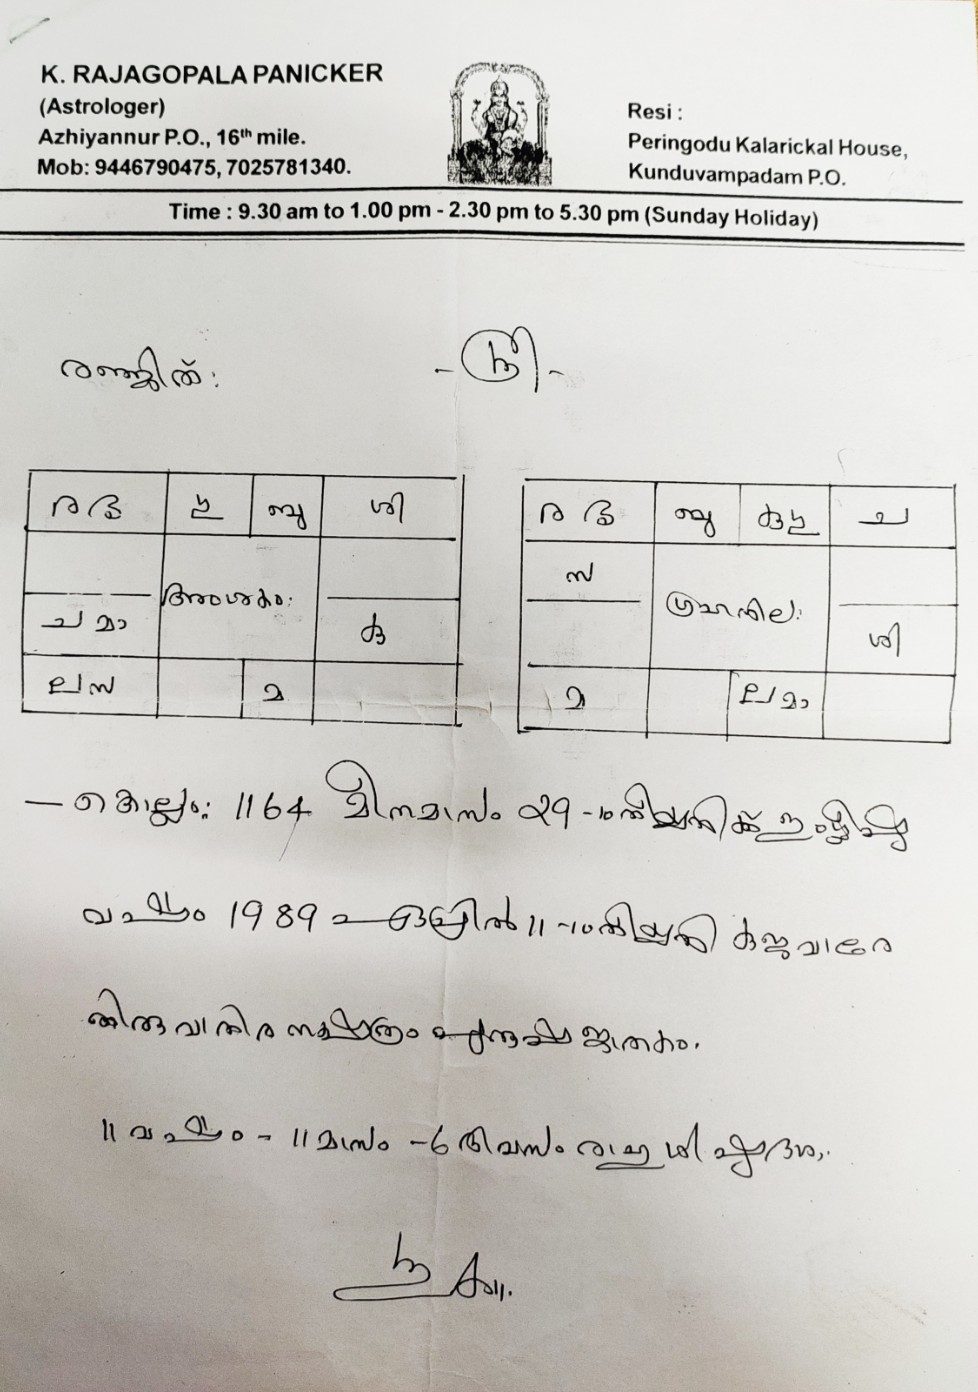 K. RAJAGOPALA PANICKER
(Astrologer)
Azhiyannur P.O., 16th mile.
Mob: 9446790475, 7025781340.
Resi :
Peringodu Kalarickal House,
Kunduvampadam P.O.
Time : 9.30 am to 1.00 pm - 2.30 pm to 5.30 pm (Sunday Holiday)
രഞ്ജിത്:
- ശ്രീ -
ര ബു ശി
അംശകം:
ച മാ കു
ല സ മ
ര ബു ച
സ
ഗ്രഹനില:
ശി
മ ല മാ
കൊല്ലം: 1164 മീനമാസം 29-ാംതിയ്യതിക്ക് ഇംഗ്ലീഷു
വർഷം 1989 ഏപ്രിൽ 11-ാംതിയ്യതി കുജവാരേ
തിരുവാതിര നക്ഷത്രം പുരുഷ ജാതകം.
11 വർഷം - 11 മാസം - 6 ദിവസം രാഹു ശിഷ്ടദശ